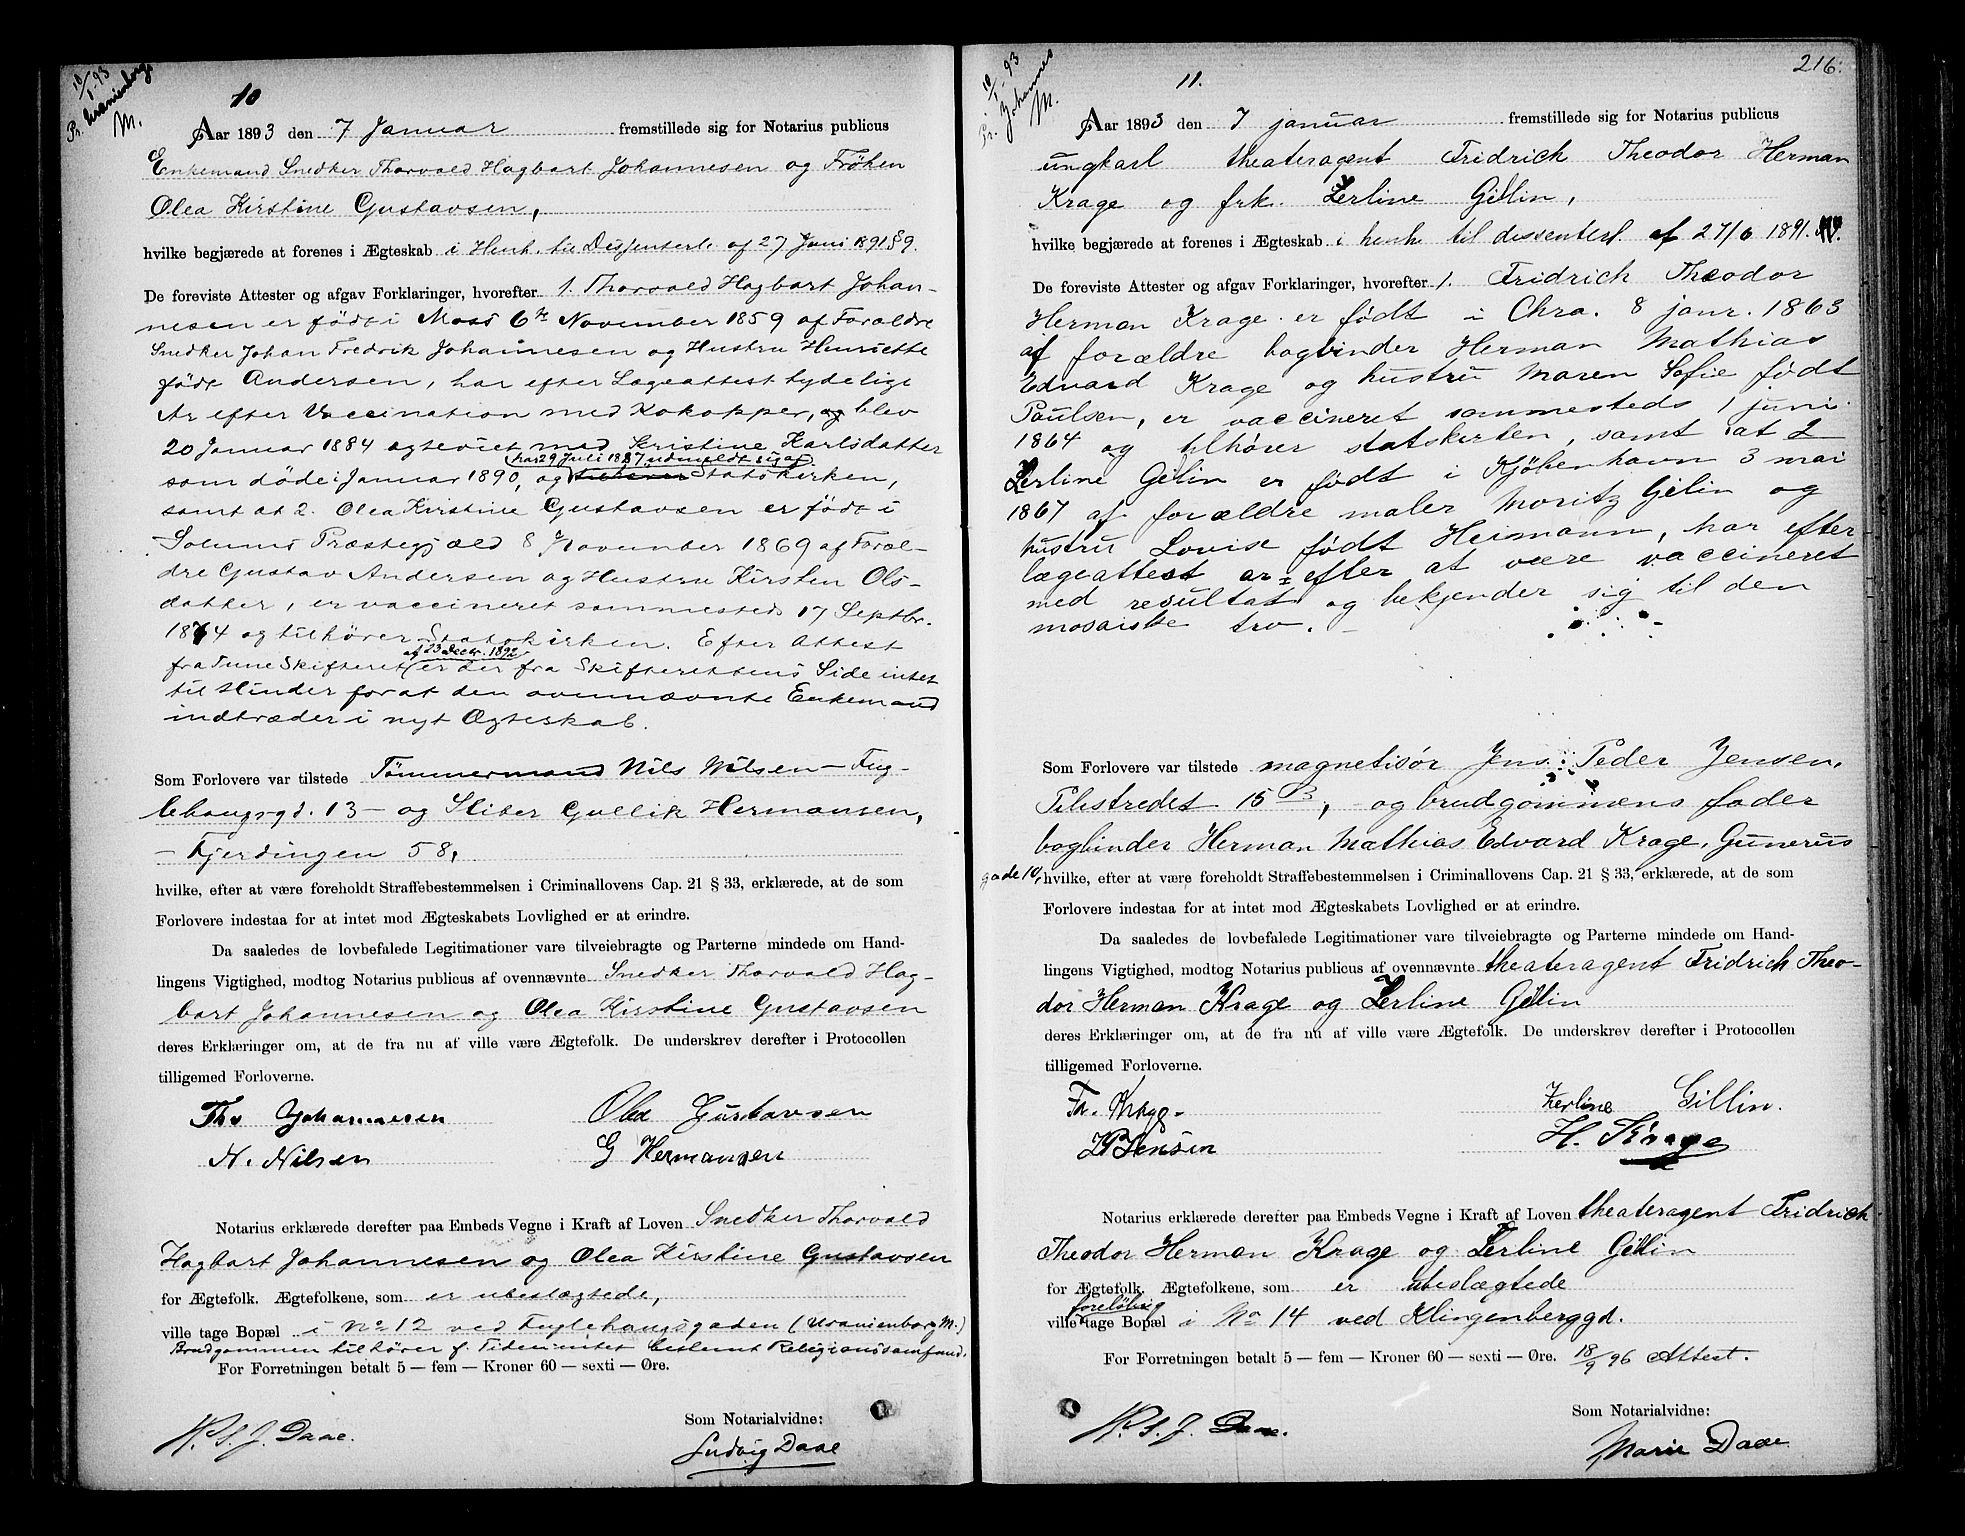 10/1 93
Pr. Uranienborgs
M.
10
Aar 1893 den 7 Januar fremstillede sig for Notarius publicus
Enkemand Snedker Thorvald Hagbart Johannesen og Frøken
Olea Kirstine Gustavsen,
hvilke begjærede at forenes i Ægteskab i Henh. til Dissenterl. af 27 Juni 1891 § 9.
De foreviste Attester og afgav Forklaringer, hvorefter 1. Thorvald Hagbart Johan-
nesen er født i Moss 6te November 1859 af Forældre
Snedker Johan Fredrik Johannesen og Hustru Henriette
født Andersen, har efter Lægeattest tydelige
Ar efter Vaccination med Kokopper, og blev
20 Januar 1884 ægteviet med Kristine Karlsdatter
har 29 Juli 1887 udmeldt sig af
som døde i Januar 1890, og tilhører Statskirken,
samt at 2. Olea Kirstine Gustavsen er født i
Solums Præstegjæld 8 November 1869 af Foræl-
dre Gustav Andersen og Hustru Kirsten Ols-
datter, er vaccineret sammesteds 17 Septbr.
1874 og tilhører Statskirken. Efter Attest
af 23 Decbr. 1892
fra Tune Skifteret er der fra Skifterettens Side intet
til Hinder for at den ovennævnte Enkemand
indtræder i nyt Ægteskab.
Som Forlovere var tilstede Tømmermand Nils Nilsen – Fug-
lehaugsgd. 13 – og Sliber Gullik Hermansen,
– Fjerdingen 58,
hvilke, efter at være foreholdt Straffebestemmelsen i Criminallovens Cap. 21 § 33, erklærede, at de som
Forlovere indestaa for at intet mod Ægteskabets Lovlighed er at erindre.
Da saaledes de lovbefalede Legitimationer vare tilveiebragte og Parterne mindede om Hand-
lingens Vigtighed, modtog Notarius publicus af ovennævnte Snedker Thorvald Hag-
bart Johannesen og Olea Kirstine Gustavsen
deres Erklæringer om, at de fra nu af ville være Ægtefolk. De underskrev derefter i Protocollen
tilligemed Forloverne.
Tho Johannesen Olea Gustavsen
N. Nilsen G Hermansen
Notarius erklærede derefter paa Embeds Vegne i Kraft af Loven Snedker Thorvald
Hagbart Johannesen og Olea Kirstine Gustavsen
for Ægtefolk. Ægtefolkene, som er ubeslægtede,
ville tage Bopæl i No 12 ved Fuglehaugsgaden (Uranienborg M.)
Brudgommen tilhører f. Tiden intet bestemt Religionssamfund.
For Forretningen betalt 5 — fem — Kroner 60 — sexti — Øre.
Som Notarialvidne:
N. S. J. Daae.
Ludvig Daae
216.
10/1 93
Pr. Johannes
M.
11.
Aar 1893 den 7 januar fremstillede sig for Notarius publicus
ungkarl theateragent Fridrich Theodor Herman
Krage og frk. Zerline Gillin,
hvilke begjærede at forenes i Ægteskab i henh. til dissenterl. af 27/6 1891.
De foreviste Attester og afgav Forklaringer, hvorefter 1. Fridrich Theodor
Herman Krage er født i Chra. 8 janr. 1863
af forældre bogbinder Herman Mathias
Edvard Krage og hustru Maren Sofie født
Paulsen, er vaccineret sammesteds 1 juni
1864 og tilhører statskirken, samt at 2
Zerline Gelin er født i Kjøbenhavn 3 mai
1867 af forældre maler Moritz Gelin og
hustru Lovise født Heimann, har efter
lægeattest ar efter at være vaccineret
med resultat og bekjender sig til den
mosaiske tro. –
Som Forlovere var tilstede magnetisør Jens Peder Jensen,
Pilestrædet 15 B, – og brudgommens fader
bogbinder Herman Mathias Edvard Krage, Gunerus
gade 10, hvilke, efter at være foreholdt Straffebestemmelsen i Criminallovens Cap. 21 § 33, erklærede, at de som
Forlovere indestaa for at intet mod Ægteskabets Lovlighed er at erindre.
Da saaledes de lovbefalede Legitimationer vare tilveiebragte og Parterne mindede om Hand-
lingens Vigtighed, modtog Notarius publicus af ovennævnte theateragent Fridrich Theo-
dor Herman Krage og Zerline Gillin
deres Erklæringer om, at de fra nu af ville være Ægtefolk. De underskrev derefter i Protocollen
tilligemed Forloverne.
Fr. Krage Zerline Gillin.
JP Jensen H. Krage
Notarius erklærede derefter paa Embeds Vegne i Kraft af Loven theateragent Fridrich
Theodor Herman Krage og Zerline Gillin
for Ægtefolk. Ægtefolkene, som er ubeslægtede
foreløbig
ville tage Bopæl i No 14 ved Klingenberggd.
For Forretningen betalt 5 — fem — Kroner 60 — sexti — Øre. 18/9 96 Attest.
Som Notarialvidne:
N. S. J. Daae.
Marie Daae